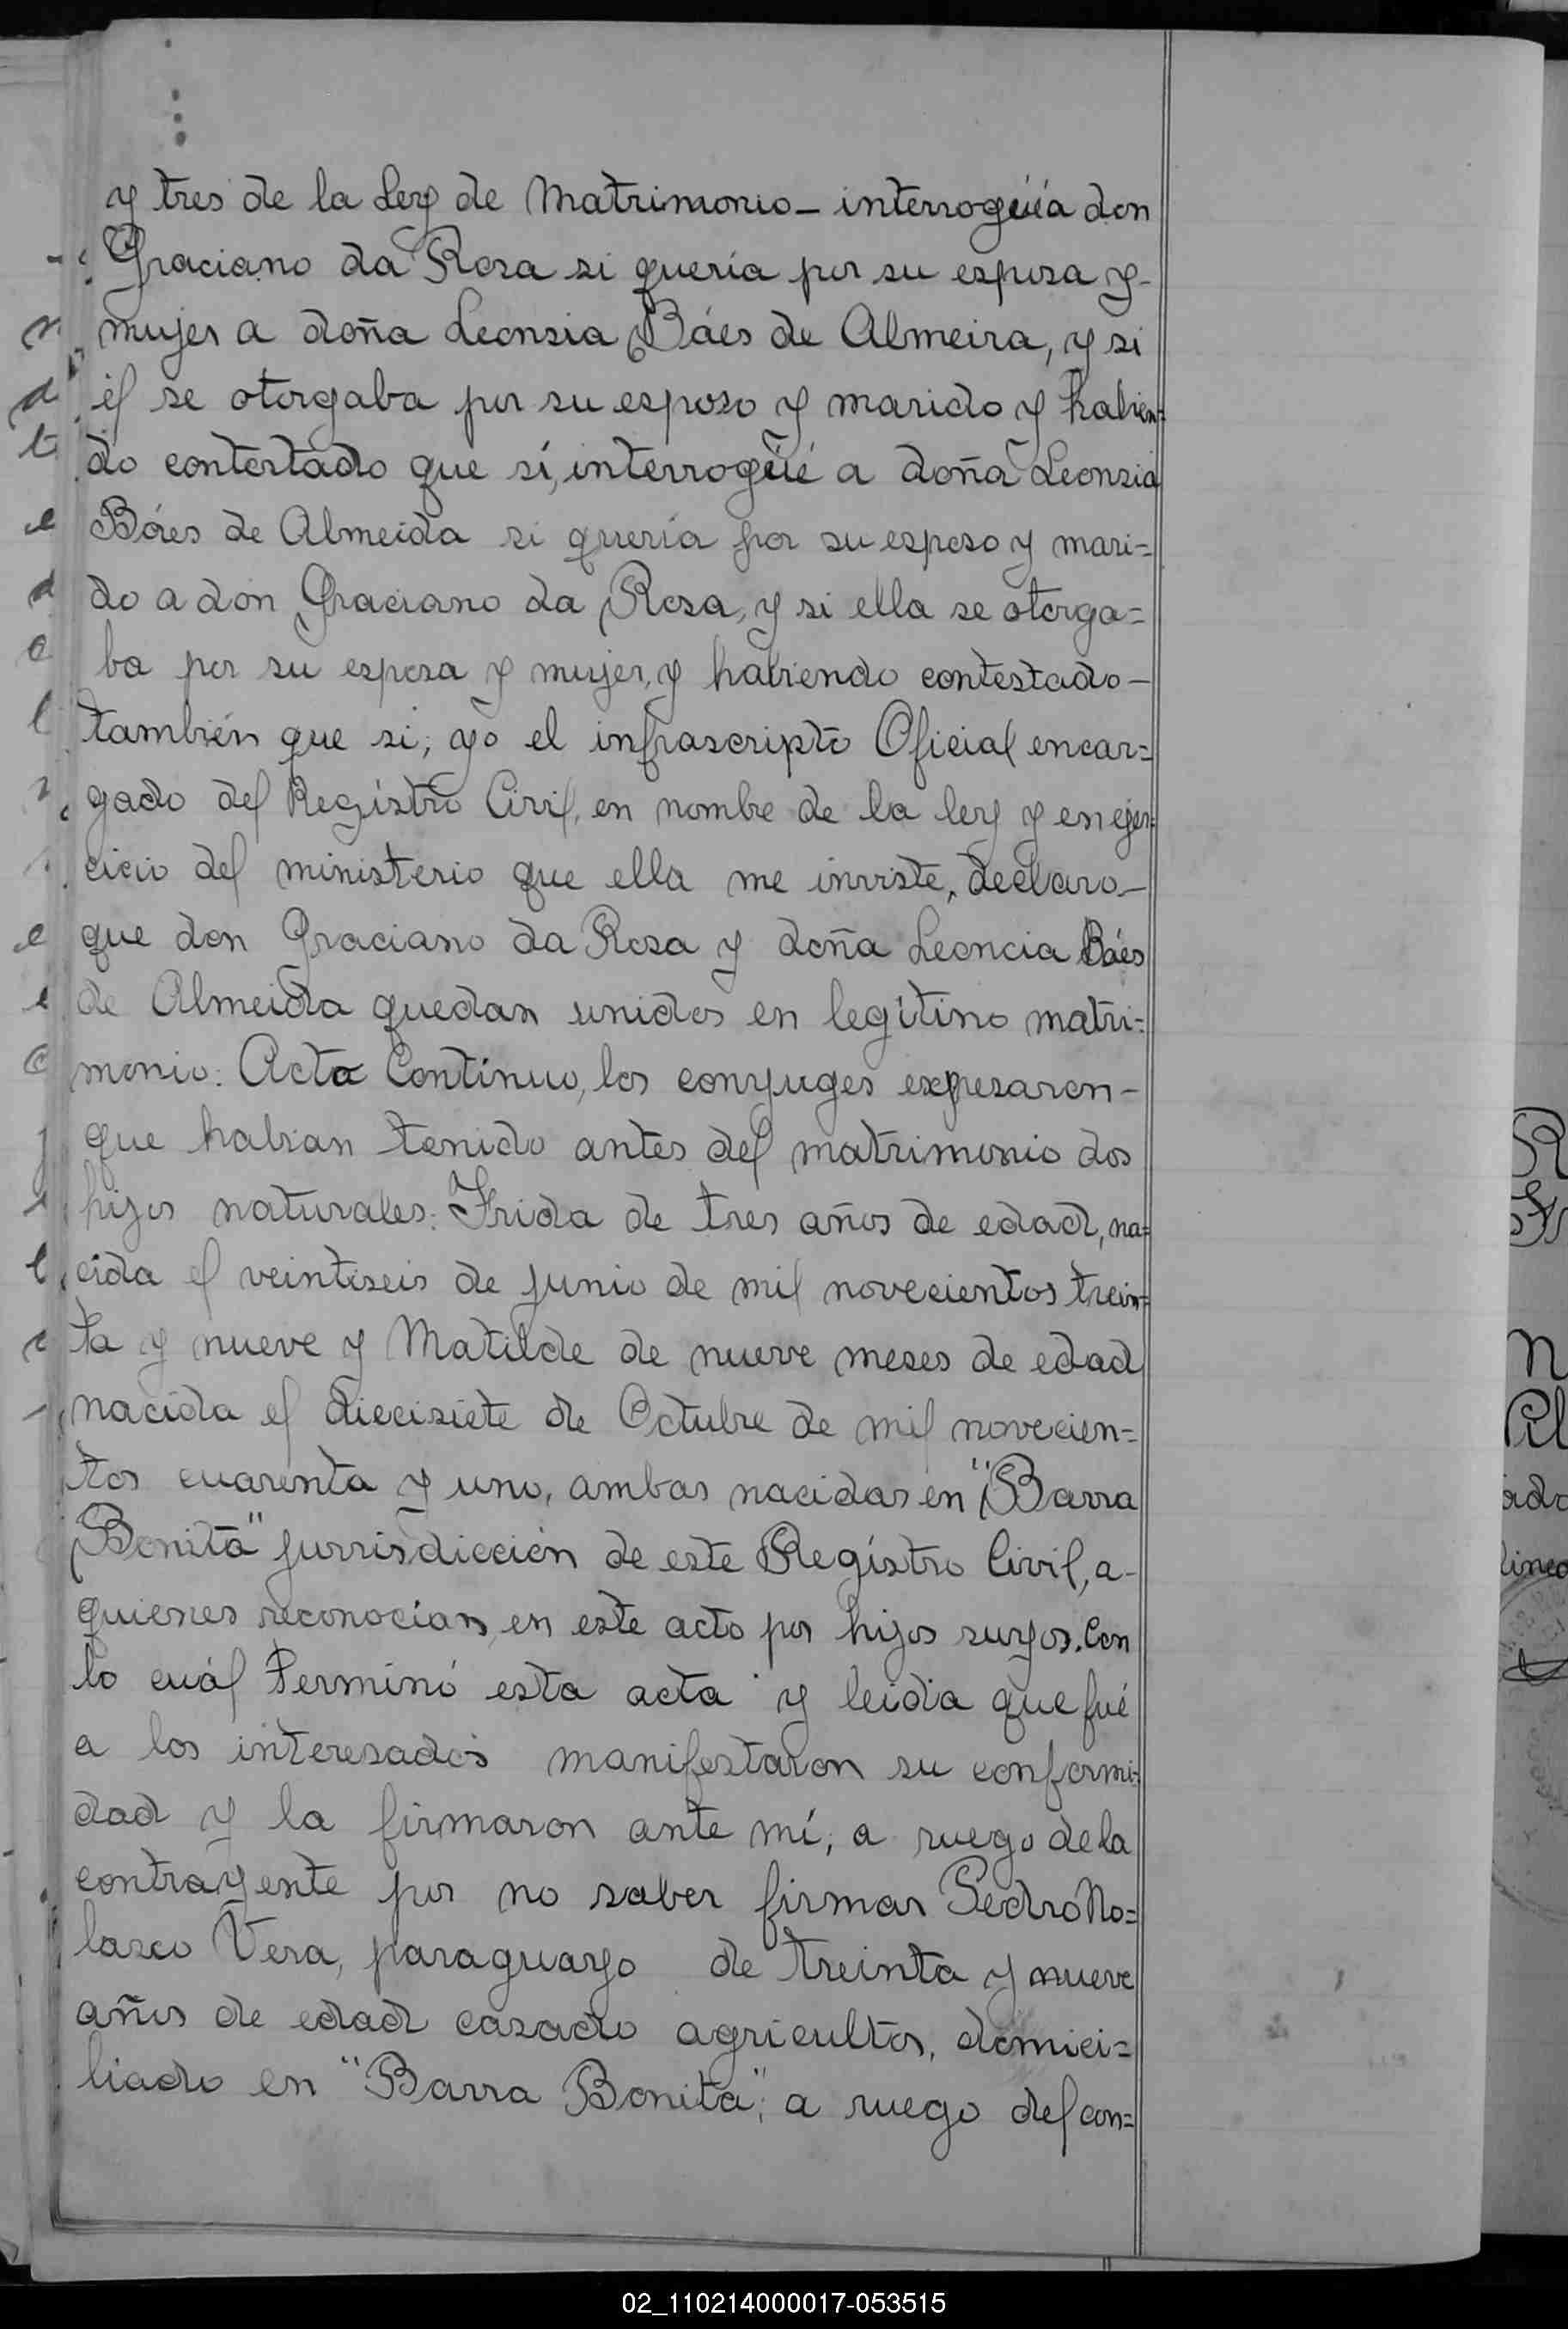 y tres de la Ley de Matrimonio - interrogüé a don
Graciano da Rosa si quería por su esposa y-
mujer a doña Leonsia Báes de Almeira, y si
él se otorgaba por su esposo y marido y habien=
do contestado que sí, interrogüé a doña Leonsia
Báes de Almeida si quería por su esposo y mari=
do a don Graciano da Rosa, y si ella se otorga=
ba por su esposa y mujer, y habiendo contestado -
también que si; yo el infrascripto Oficial encar=
gado del Regístro Civil, en nombre de la ley y en ejer=
cicio del ministerio que ella me inviste, declaro -
que don Graciano da Rosa y doña Leoncia Báes
de Almeida quedan unidos en legítino matri=
monio: Acto Contínuo, los conyuges expresaron -
que habian tenido antes del matrimonio dos
hijos naturales: Frida de tres años de edad, na=
cida el veintiseis de junio de mil novecientos trein=
ta y nueve y Matilde de nueve meses de edad
nacida el diecisiete de Octubre de mil novecien=
tos cuarenta y uno, ambas nacidas en "Barra
Bonita" jurrisdicción de este Regístro Civil, a -
quienes reconocían en este acto por hijos suyos. Con
lo cuál terminó esta acta y leidia que fué
a los interesados manifestaron su conformi=
dad y la firmaron ante mí; a ruego de la
contrayente por no saber firmar Pedro No=
lasco Vera, paraguayo de treinta y nueve
años de edad casado agricultor, domici=
liado en "Barra Bonita"; a ruego del con=
02_110214000017-053515